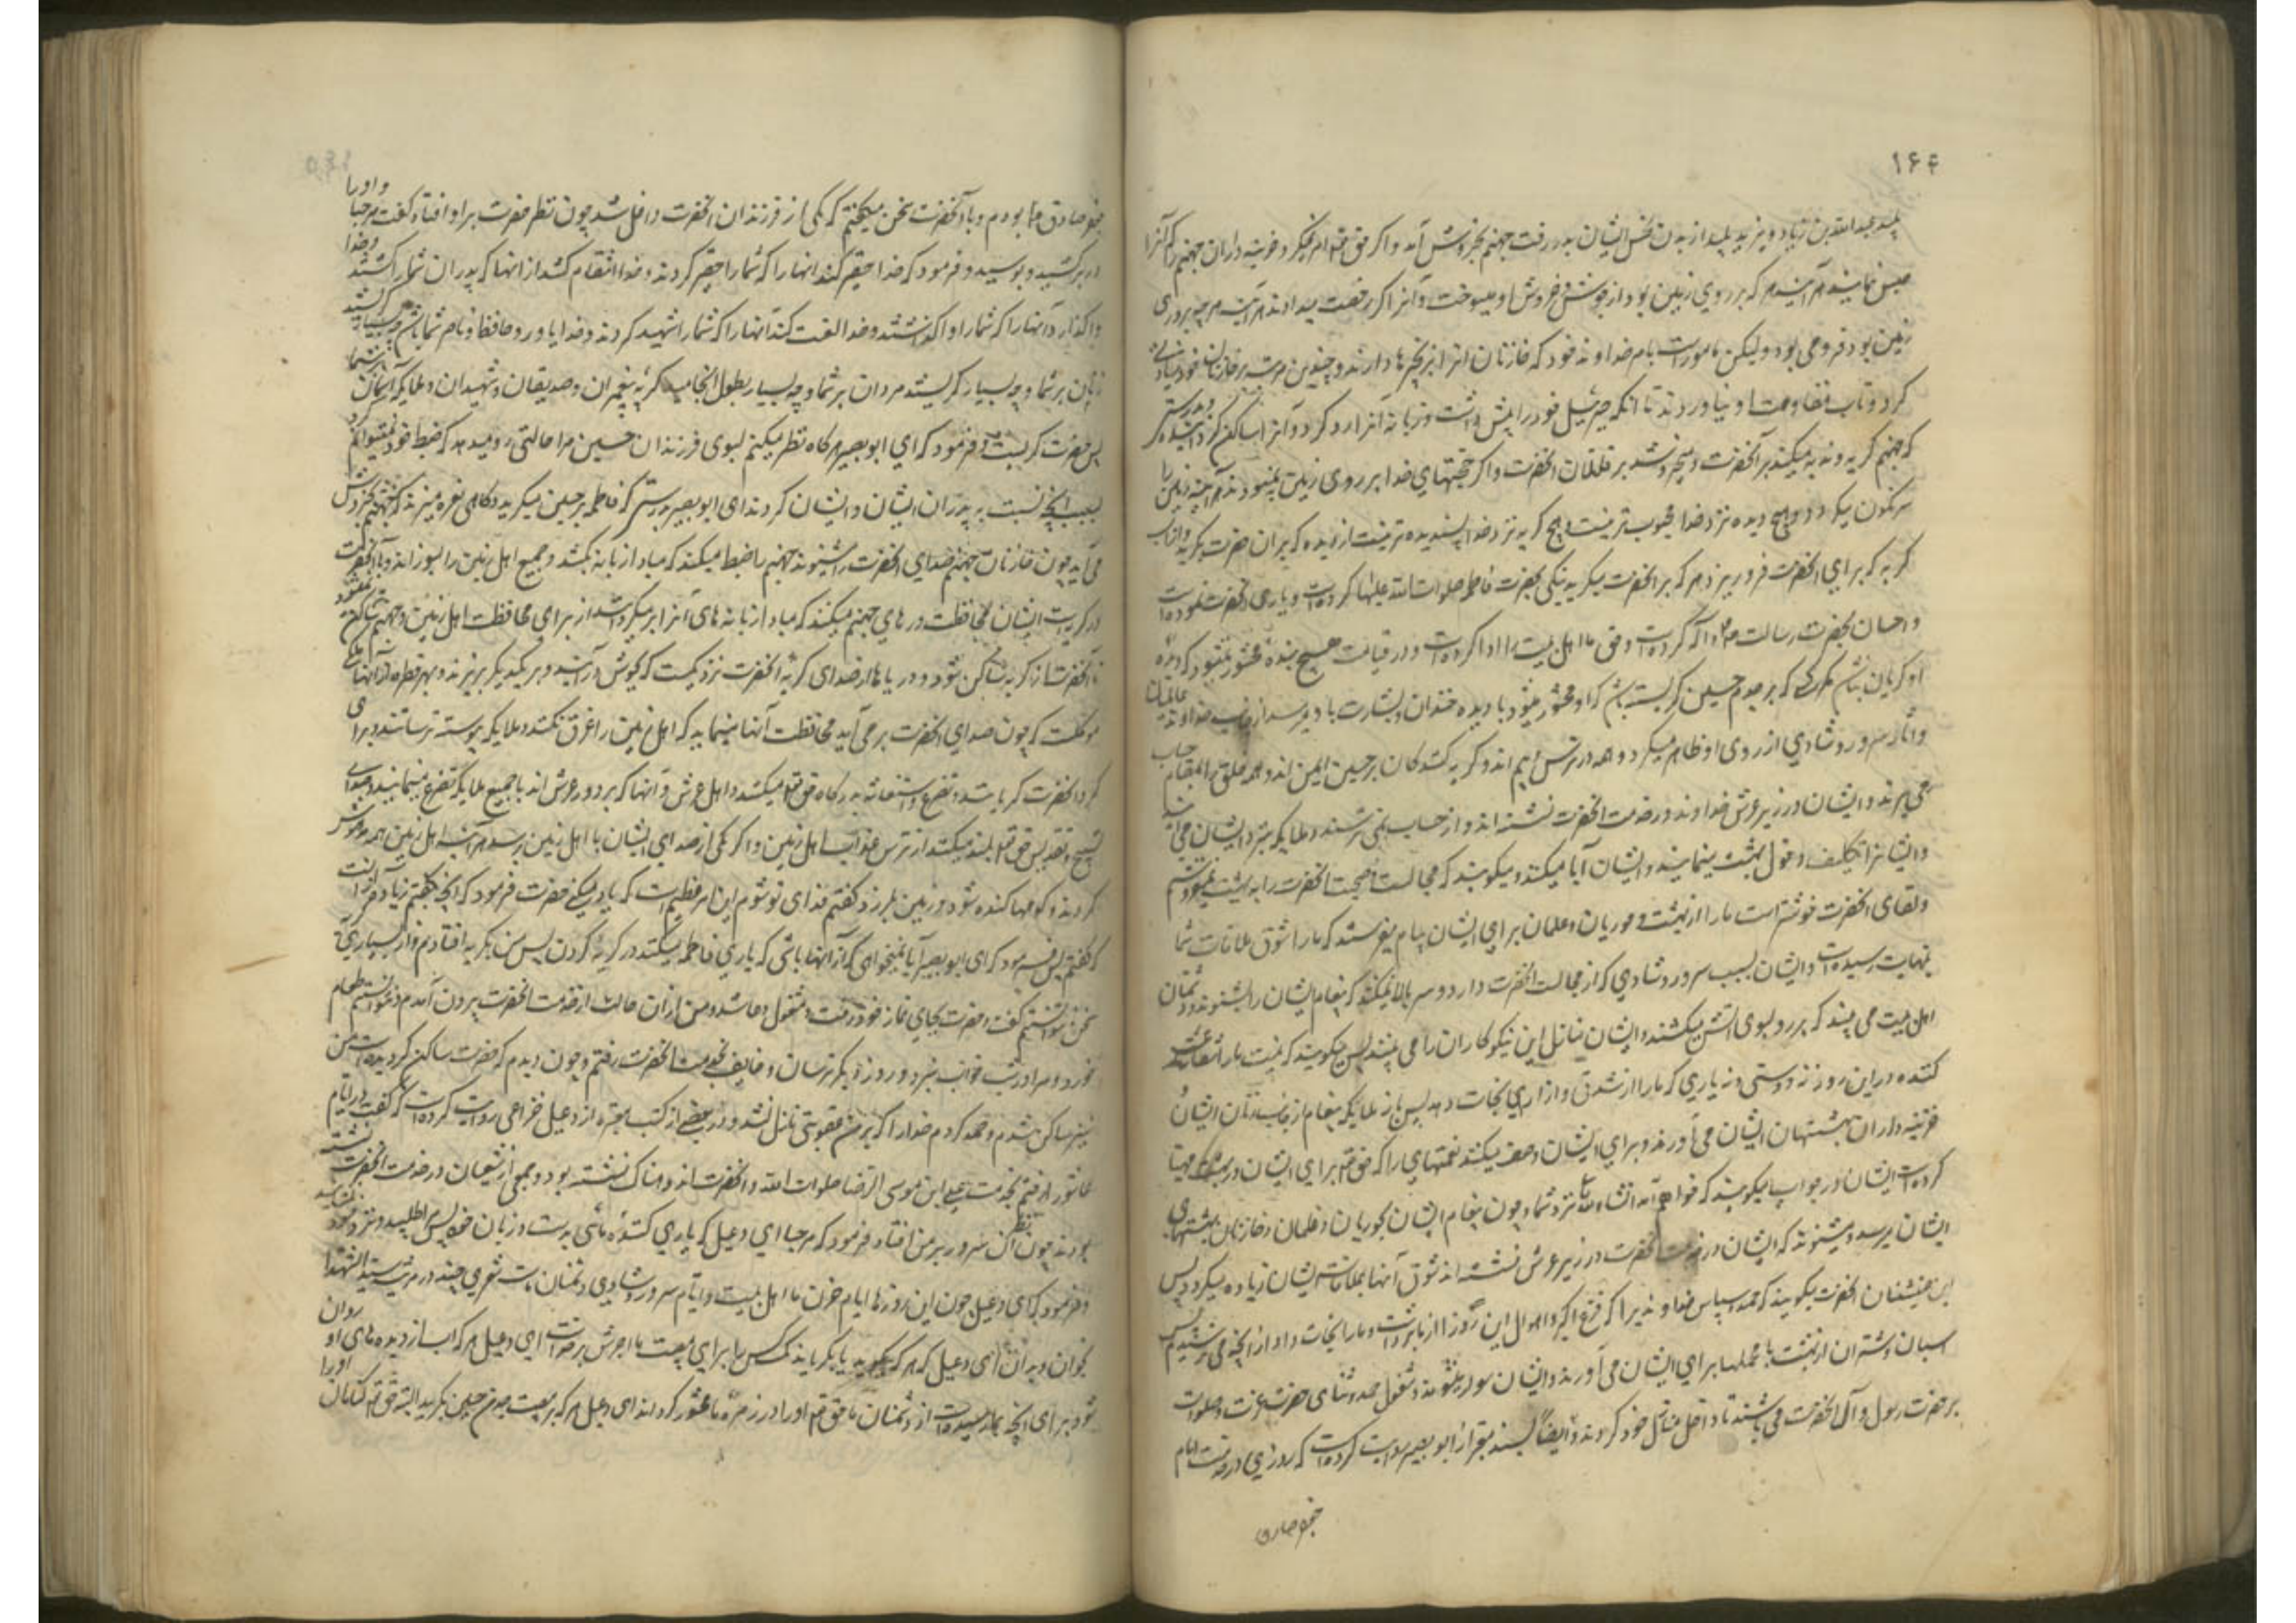 ۱۶۴
پلید عبدالله بن زیاد و یزید پلید از بدن نحس ایشان بدر رفت جهنم بخروش آمد و اگر حق تع امر نمیکرد خزینه داران جهنم را که آنرا
حبس نمایند هر آینه هر که بر روی زمین بود از جوشش و خروش او میسوخت و آنرا اگر رخصت میدادند هر آینه هر چه بر روی
زمین بود فرو می برد و لیکن مامورست بامر خداوند خود که خازنان انرا بزنجیرها دارند و چندین مرتبه بر خازنان خود زیادتی
کرد و تاب مقاومت او نیاوردند تا انکه جبرئیل خود را پیش داشت و زبانه آنرا رد کرد و آنرا ساکن کردانید و بدرستی
که جهنم گریه و ندبه میکند بر آنحضرت و میخروشد بر قاتلان انحضرت و اگر حجتهای خدا بر روی زمین نمیبودند هر آینه زمین را
سرنگون میکرد و هیچ دیده نزد خدا محبوب تر نیست و هیچ گریه نزد خدا پسندیده تر نیست از دیده که بران حضرت بگرید و از آب
گریه که برای انحضرت فرو ریزد هر که بر انحضرت میگرید نیکی بحضرت فاطمه صلوات الله علیها کرده است و یاری انحضرت نموده است
و احسان بحضرت رسالت ص کرده است و حق ما اهل بیت را ادا کرده است و در قیامت هیچ بنده محشور نمیشود که دیده
او گریان نباشد مگر کسی که بر جدم حسین گریسته باشد که او محشور میشود با دیده خندان و بشارت باو میرسد از جانب خداوند عالمیان
و آثار سرور و شادی از روی او ظاهر میگردد و همه در ترس و بیم اند و گریه کنندگان بر حسین ایمن اند و همه خلق را بمقام حساب
می برند و ایشان در زیر عرش خداوند در خدمت انحضرت نشسته اند و از حساب نمی ترسند و ملایکه بنزد ایشان می آیند
و ایشانرا تکلیف دخول بهشت مینمایند و ایشان ابا میکنند و میگویند که مجالست و صحبت انحضرت را به بهشت نمیدهیم
و لقای انحضرت خوشتر است ما را از بهشت و حوریان و غلمان برای ایشان پیام میفرستند که ما را شوق ملاقات شما
بنهایت رسیده است و ایشان بسبب سرور و شادی که از مجالست انحضرت دارند سر بالا نمیکنند که پیغام ایشان را بشنوند و دشمنان
اهل بیت می بینند که بر رو بسوی اتش میکشند و ایشان منازل این نیکوکاران را می بینند پس میگویند که نیست ما را شفاعت
کننده در این روز نه دوستی و نه یاری که ما را از شدتی و از آری نجات دهد پس باز ملایکه پیغام از جانب زنان ایشان
خزینه داران بهشتهای ایشان می آورند و برای ایشان وصف میکنند نعمتهای را که حق تع برای ایشان در بهشت مهیا
کرده است ایشان در جواب میگویند که خواهیم آمد انشاءالله نزد شما و چون پیغام ایشان بحوریان و غلمان و خازنان بهشتهای
ایشان میرسد و میشنوند که ایشان در خدمت انحضرت در زیر عرش نشسته اند شوق آنها بملاقات ایشان زیاده میگردد پس
این همنشینان انحضرت میگویند که حمد و سپاس خداوندیرا که فزع اکبر و اهوال این روز را از ما برداشت و ما را نجات داد از انچه می ترسیدیم پس
اسبان و شتران از بهشت با محملها برای ایشان می آورند و ایشان سوار میشوند و مشغول حمد و ثنای حضرت عزت و صلوات
بر حضرت رسول و آل انحضرت می باشند تا داخل منازل خود گردند و ایضاً بسند معتبر از ابو بصیر روایت کرده است که روزی در خدمت امام
جعفر صادق
جعفر صادق ع بودم و با آنحضرت سخن میگفتم که یکی از فرزندان انحضرت داخل شد چون نظر حضرت بر او افتاد گفت مرحبا و او را
در بر کشید و بوسید و فرمود که خدا حقیر کند انها را که شما را حقیر کردند و خدا انتقام کشد از انها که پدران شما را کشتند و خدا
واگذارد آنها را که شما را واگذاشتند و خدا لعنت کند آنها را که شما را شهید کردند و خدا یاور و حافظ و ناصر شما باشد چه بسیار گریستند
زنان بر شما و چه بسیار گریستند مردان بر شما و چه بسیار بطول انجامید گریه پیغمبران و صدیقان و شهیدان و ملایکه آسمان بر شما
پس حضرت گریست و فرمود که ای ابو بصیر هر گاه نظر میکنم بسوی فرزندان حسین مرا حالتی رو میدهد که ضبط خود نمیتوانم کرد
بسبب انچه نسبت به پدران ایشان و ایشان کردند ای ابو بصیر بدرستی که فاطمه بر حسین میگرید و گاهی نعره میزند که جهنم بخروش
می آید چون خازنان جهنم صدای انحضرت را میشنوند جهنم را ضبط میکنند که مبادا زبانه بکشد و جمیع اهل زمین را بسوزاند و تا آنحضرت
در گریه است ایشان محافظت درهای جهنم میکنند که مبادا زبانه های آنرا بر میگردانند از برای محافظت اهل زمین و جهنم ساکن نمیشود
تا آنحضرت از گریه ساکن شود و دریاها از صدای گریه انحضرت نزدیکست که بجوش در آیند و بر یکدیگر بریزند و بهر قطره از آنها ملکی
موکلست که چون صدای انحضرت بر می آید محافظت آنها مینماید که اهل زمین را غرق نکنند و ملایکه پیوسته ترسانند و برای
گریه انحضرت گریانند و تضرع و استغاثه بدرگاه حق تع میکنند و اهل عرش و آنها که بر دور عرش اند با جمیع ملایکه تضرع مینمایند و صدای
تسبیح و تقدیس حق تع بلند میکنند از ترس عذاب اهل زمین و اگر یکی از صدای ایشان با اهل زمین برسد هر آینه اهل زمین همه مدهوش
گردند و کوهها کنده شود و زمین بلرزد گفتم فدای تو شوم این امر عظیم است که یاد میکنی حضرت فرمود که انچه نگفتم زیاده از آنست
که گفتم پس فرمود که ای ابو بصیر آیا نمیخواهی که از آنها باشی که یاری فاطمه میکنند در گریه کردن پس من بگریه افتادم و از بسیاری گریه
سخن نتوانستم گفت و حضرت بجای نماز خود رفت و مشغول دعا شد و من از ان حالت از خدمت انحضرت بیرون آمدم و نتوانستم طعام
خورد و مرا در شب خواب نبرد و روز دیگر ترسان و خایف بخدمت انحضرت رفتم و چون دیدم که حضرت ساکن گردیده است من
نیز ساکن شدم و حمد کردم خدا را که بر من عقوبتی نازل نشد و در بعضی از کتب معتبره از دعبل خزاعی روایت کرده است که گفت در ایام
عاشورا رفتم بخدمت علی ابن موسی الرضا صلوات الله و انحضرت اندوهناک نشسته بود و جمعی از شیعیان در خدمت انحضرت نشسته
بودند چون نظر آن سرور بر من افتاد فرمود که مرحبا ای دعبل که یاری کننده مائی بدست و زبان خود پس مرا طلبید و نزد خود
و فرمود که ای دعبل چون این روزها ایام حزن ما اهل بیت و ایام سرور و شادی دشمنان ماست شعری چند در مرثیه سید الشهدا
بخوان و بدان ای دعبل که هر که بگرید یا بگریاند یک کس را برای مصیبت ما اجرش بر خداست ای دعبل هر که آب از دیده های او روان
شود برای انچه بما رسیده است از دشمنان ما حق تع او را در زمره ما محشور گرداند ای دعبل هر که بر مصیبت جدم حسین بگرید البته حق تع گناهان او را